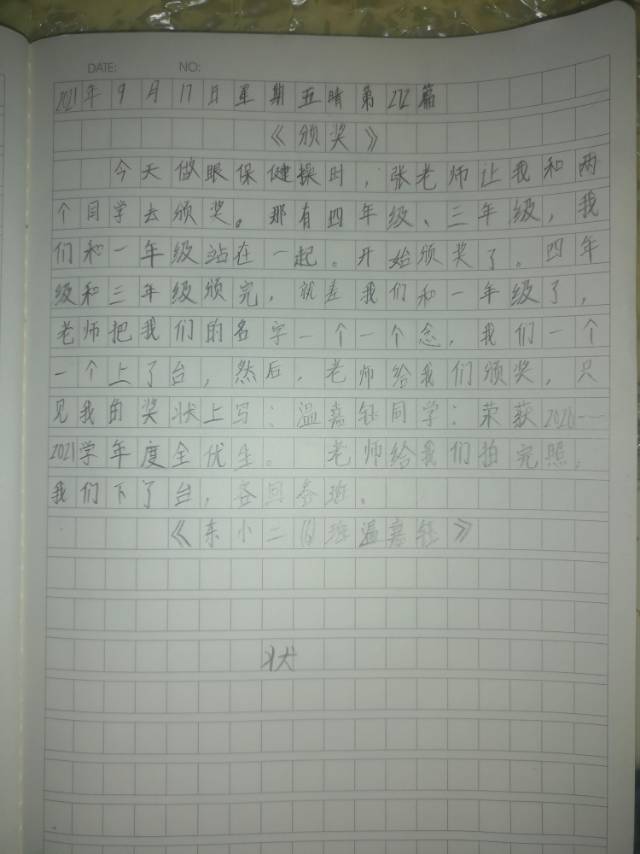 DATE: NO:
2021年9月17日星期五晴第212篇
《颁奖》
今天做眼保健操时，张老师让我和两
个同学去颁奖。那有四年级、三年级，我
们和一年级站在一起。开始颁奖了。四年
级和三年级颁完，就是我们和一年级了，
老师把我们的名字一个一个念，我们一个
一个上了台，然后，老师给我们颁奖，只
见我的奖状上写：温嘉钰同学：荣获2020--
2021学年度全优生。 老师给我们拍完照，
我们下了台，各回各班。
《东小二 班温嘉钰》
状